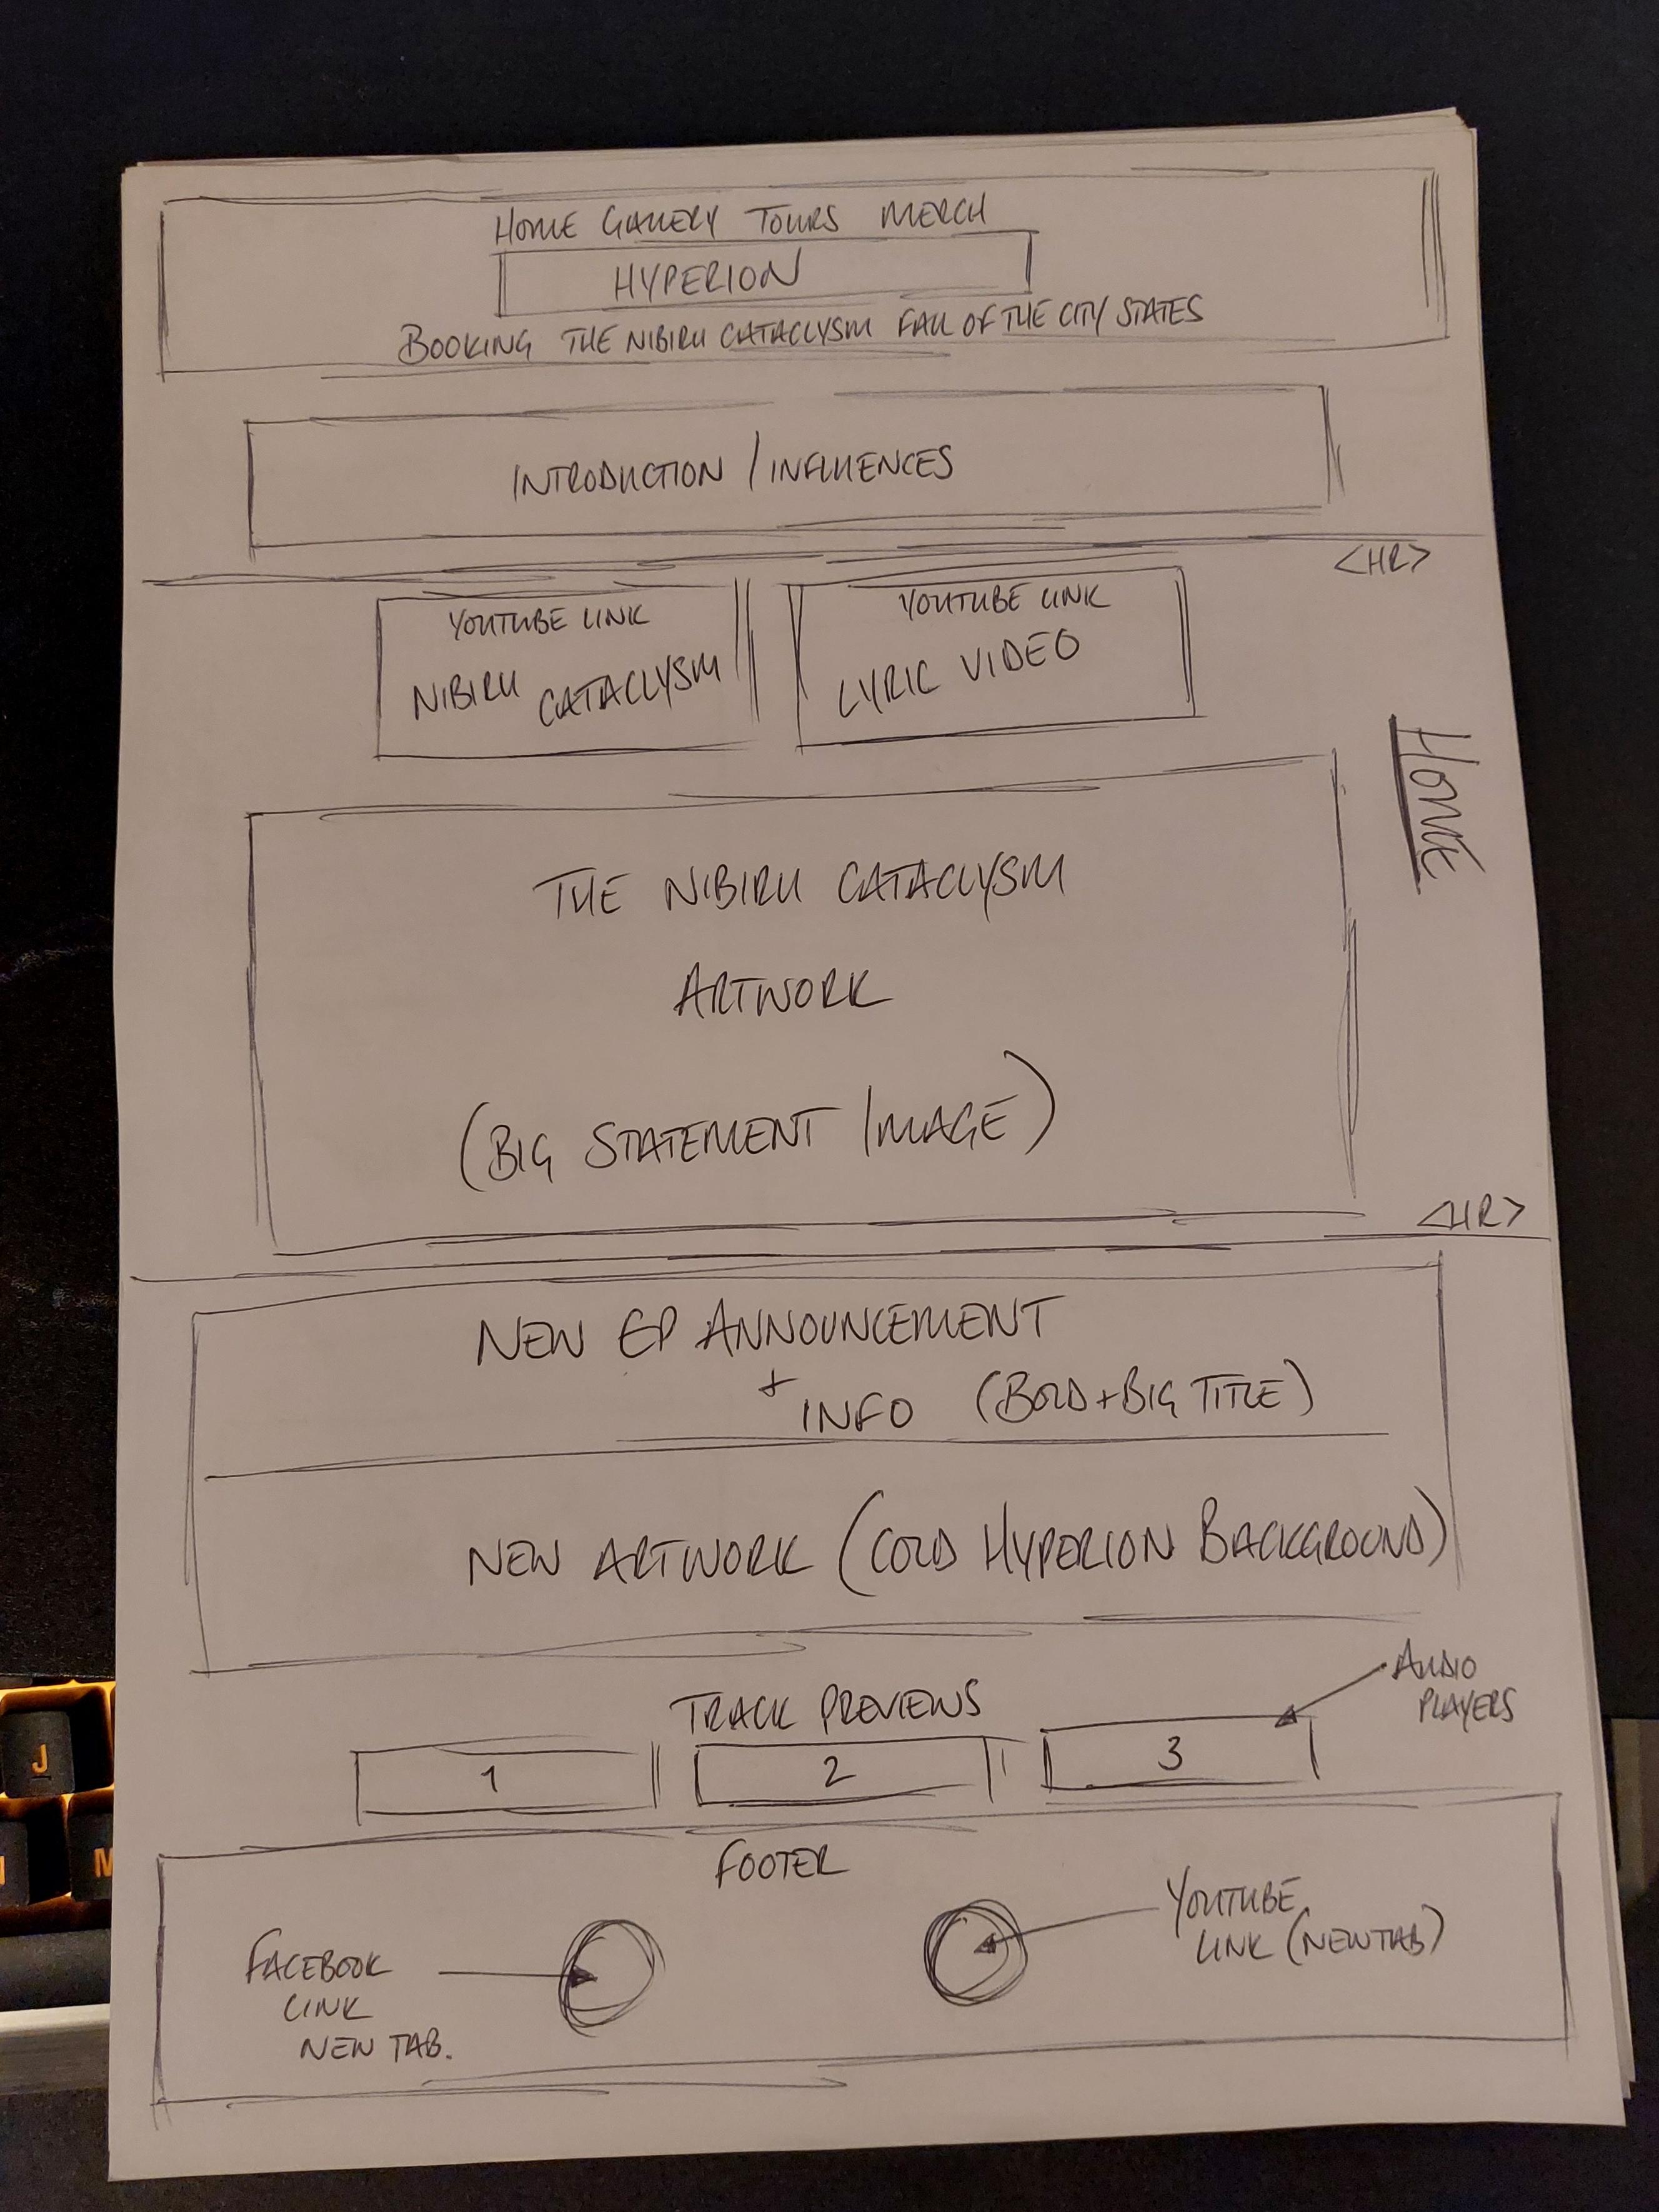 HOME GALLERY TOURS MERCH
HYPERION
BOOKING THE NIBIRU CATACLYSM FALL OF THE CITY STATES
INTRODUCTION / INFLUENCES
<HR>
YOUTUBE LINK
NIBIRU CATACLYSM
YOUTUBE LINK
LYRIC VIDEO
HOME
THE NIBIRU CATACLYSM
ARTWORK
(BIG STATEMENT IMAGE)
<HR>
NEW EP ANNOUNCEMENT
+ INFO (BOLD+BIG TITLE)
NEW ARTWORK (COLD HYPERION BACKGROUND)
TRACK PREVIEWS
AUDIO
PLAYERS
1 2 3
FOOTER
FACEBOOK
LINK
NEW TAB.
YOUTUBE
LINK (NEW TAB)
J
M